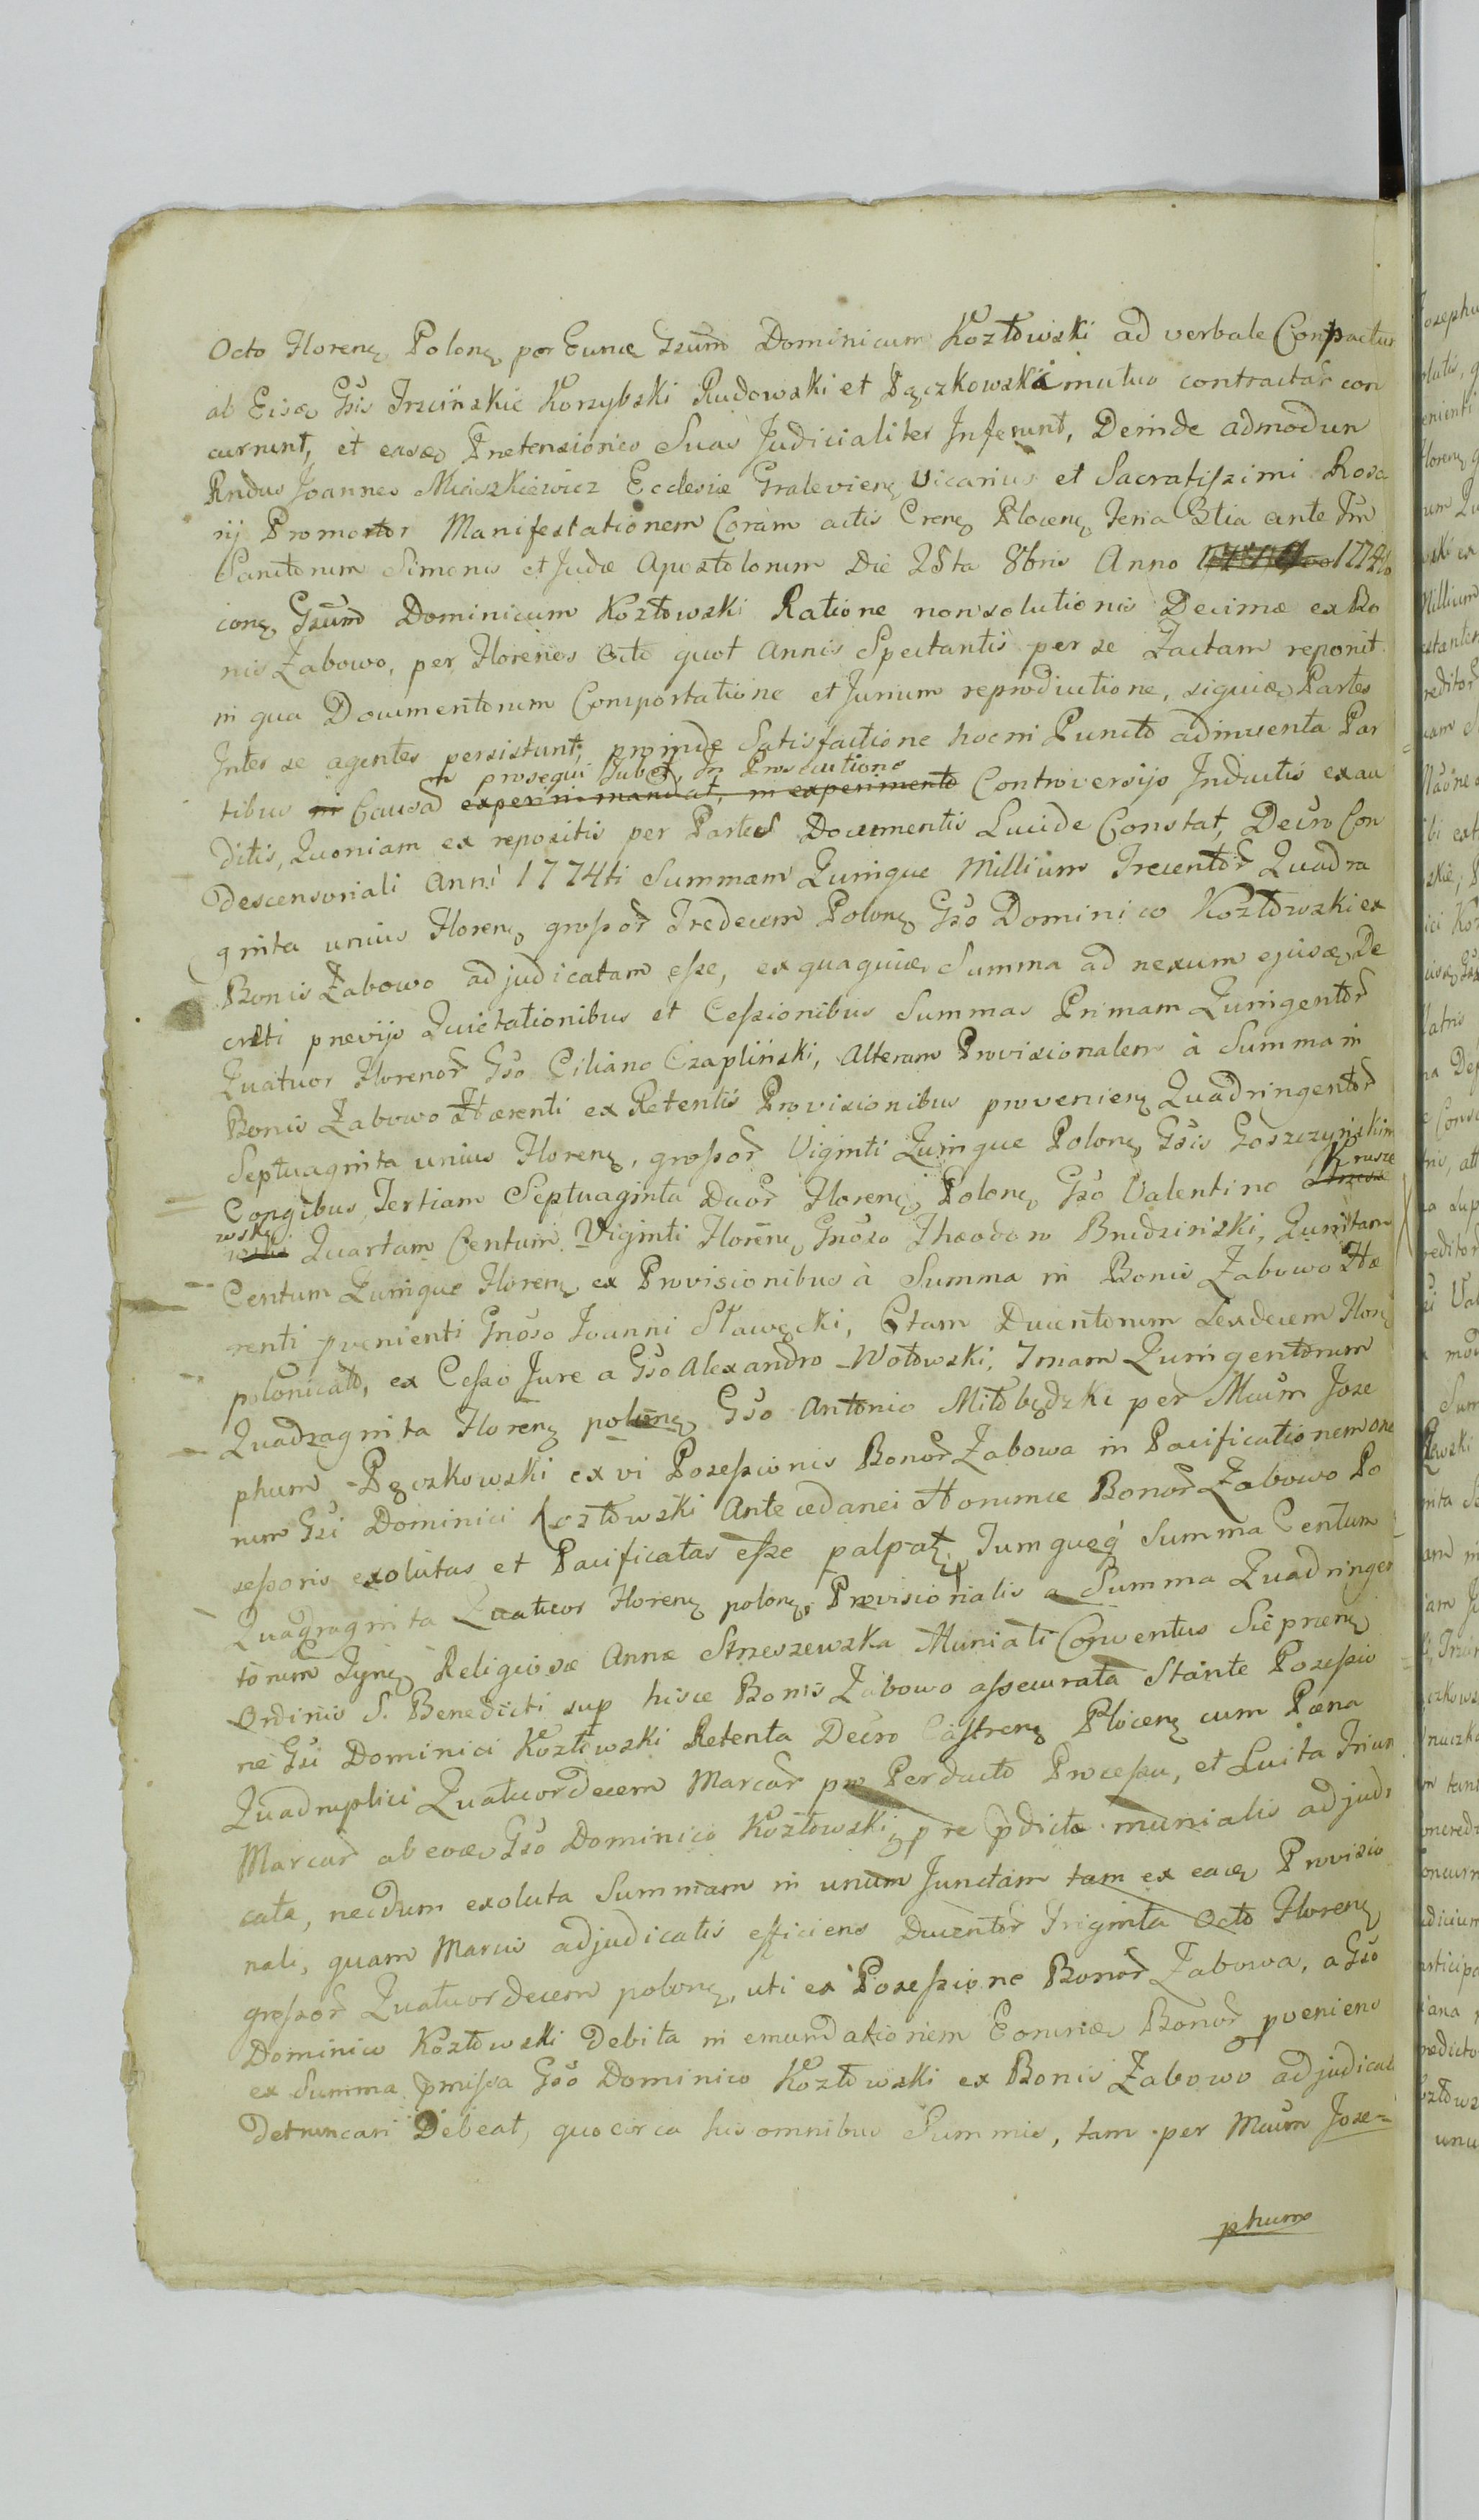 Octo Florenꝫ Polonꝫ per Eundꝫ Gsum Dominicum Kozłowski ad verbale Contractum
ab Eisdꝫ Gsis Trzcińskie Korzybski Rudowski et Pączkowski mutuo contractar con
currunt, et easdꝫ Pretensiones Suas Judicialiter Inferunt, Deinde admodum
Rndus Joannes Miaszkiewicz Ecclesiæ Gralevienꝫ Vicarius et Sacratissimi Rosa
rij Promotor Manifestationem Coram actis Crenꝫ Plocenꝫ Feria 3tia ante Fm
Sanctorum Simonis et Judæ Apostolorum Die 25ta 8bris Anno 1774to
conꝫ Gsum Dominicum Kozłowski Ratione nonsolutionis Decimæ ex Bo
nis Zabowo, per Florenos Octo quot Annis Spectantis per se Factam reponit
in qua Documentorum Comportatione et Jurium reproductione, siquidꝫ Partes
Inter se agentes persistunt, proinde Satisfactione hocni Puncto adinventa Par
prosequi Jubet, In Prosecutione
tibus in Causa experiri mandat, in experimento Controversijs Inductis exau
ditis, Quoniam ex repositis per Partes Documentis Lucide Constat, Decro Con
descensoriali Anni 1774ti Summam Quinque Millium Trecentor Quadra
ginta unius Florenꝫ grossor Tredecem Polonꝫ Gso Dominico Kozłowski ex
Bonis Zabowo adjudicatam esse, ex quaquidꝫ Summa ad nexum ejusdꝫ De
creti previjs Quietationibus et Cessionibus Summas Primam Quingentor
Quatuor Florenor Gso Ciliano Czapliński, Alteram Provisionalem à Summa in
Bonis Zabowo Hærenti ex Retentis Provisionibus provenienꝫ Quadringentor
Septuaginta unius Florenꝫ, grossor Viginti Quinque Polonꝫ Gsis Goszczyńskim
Krusze
Congibus, Tertiam Septuaginta Duor Florenꝫ Polonꝫ Gso Valentino
wski
Quartam Centum Viginti Florenꝫ Gnoso Theodoro Brudziński, Quintam
Centum Quinque Florenꝫ ex Provisionibus à Summa in Bonis Zabowo Hæ
renti pvenienti Gnoso Joanni Sławęcki, 6tam Ducentorum Sexdecem Flor
polonicato, ex Cesso Jure a Gso Alexandro Wołowski, 7mam Quingentorum
Quadraginta Florenꝫ polonꝫ Gso Antonio Miłobędzki per Mcum Jose
phum Pączkowski ex vi Possessionis Bonor Zabowa in Pacificationem one
rum Gsi Dominici Kozłowski Antecedanei Horumce Bonor Zabowo Po
sessoris exolutas et Pacificatas esse palpat, Tumqueq Summa Centum
Quadraginta Quatuor Florenꝫ polonꝫ Provisionalis a Summa Quadringen
torum Tynꝫ Religiosæ Annæ Strzeszewska Muniali Conventus Sieprcenꝫ
Ordinis S. Benedicti sup hisce Bonis Zabowo assecurata Stante Possessio
ne Gsi Dominici Kozłowski Retenta Decro Castrenꝫ Plocenꝫ cum Pæna
Quadruplici Quatuordecem Marcar pro Perducto Processu, et Luita Trium
Marcar ab eodꝫ Gso Dominico Kozłowski, pre pdicta muniali adjudi
cata, necdum exoluta Summam in unum Junctam tam ex eadꝫ Provisio
nali, quam Marcis adjudicatis efficiens Ducentor Triginta Octo Florenꝫ
grossor Quatuordecem polonꝫ, uti ex Possessione Bonor Zabowa, a Gso
Dominico Kozłowski Debita in emundationem Eorundꝫ Bonor pveniens
ex Summa pmissa Gso Dominico Kozłowski ex Bonis Zabowo adjudicat
detruncari Debeat, quocirca his omnibus Summis, tam per Mcum Jose=
phum